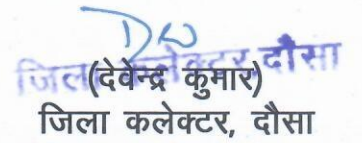 जिला कलेक्टर, दौसा
(देवेन्द्र कुमार)
जिला कलेक्टर, दौसा